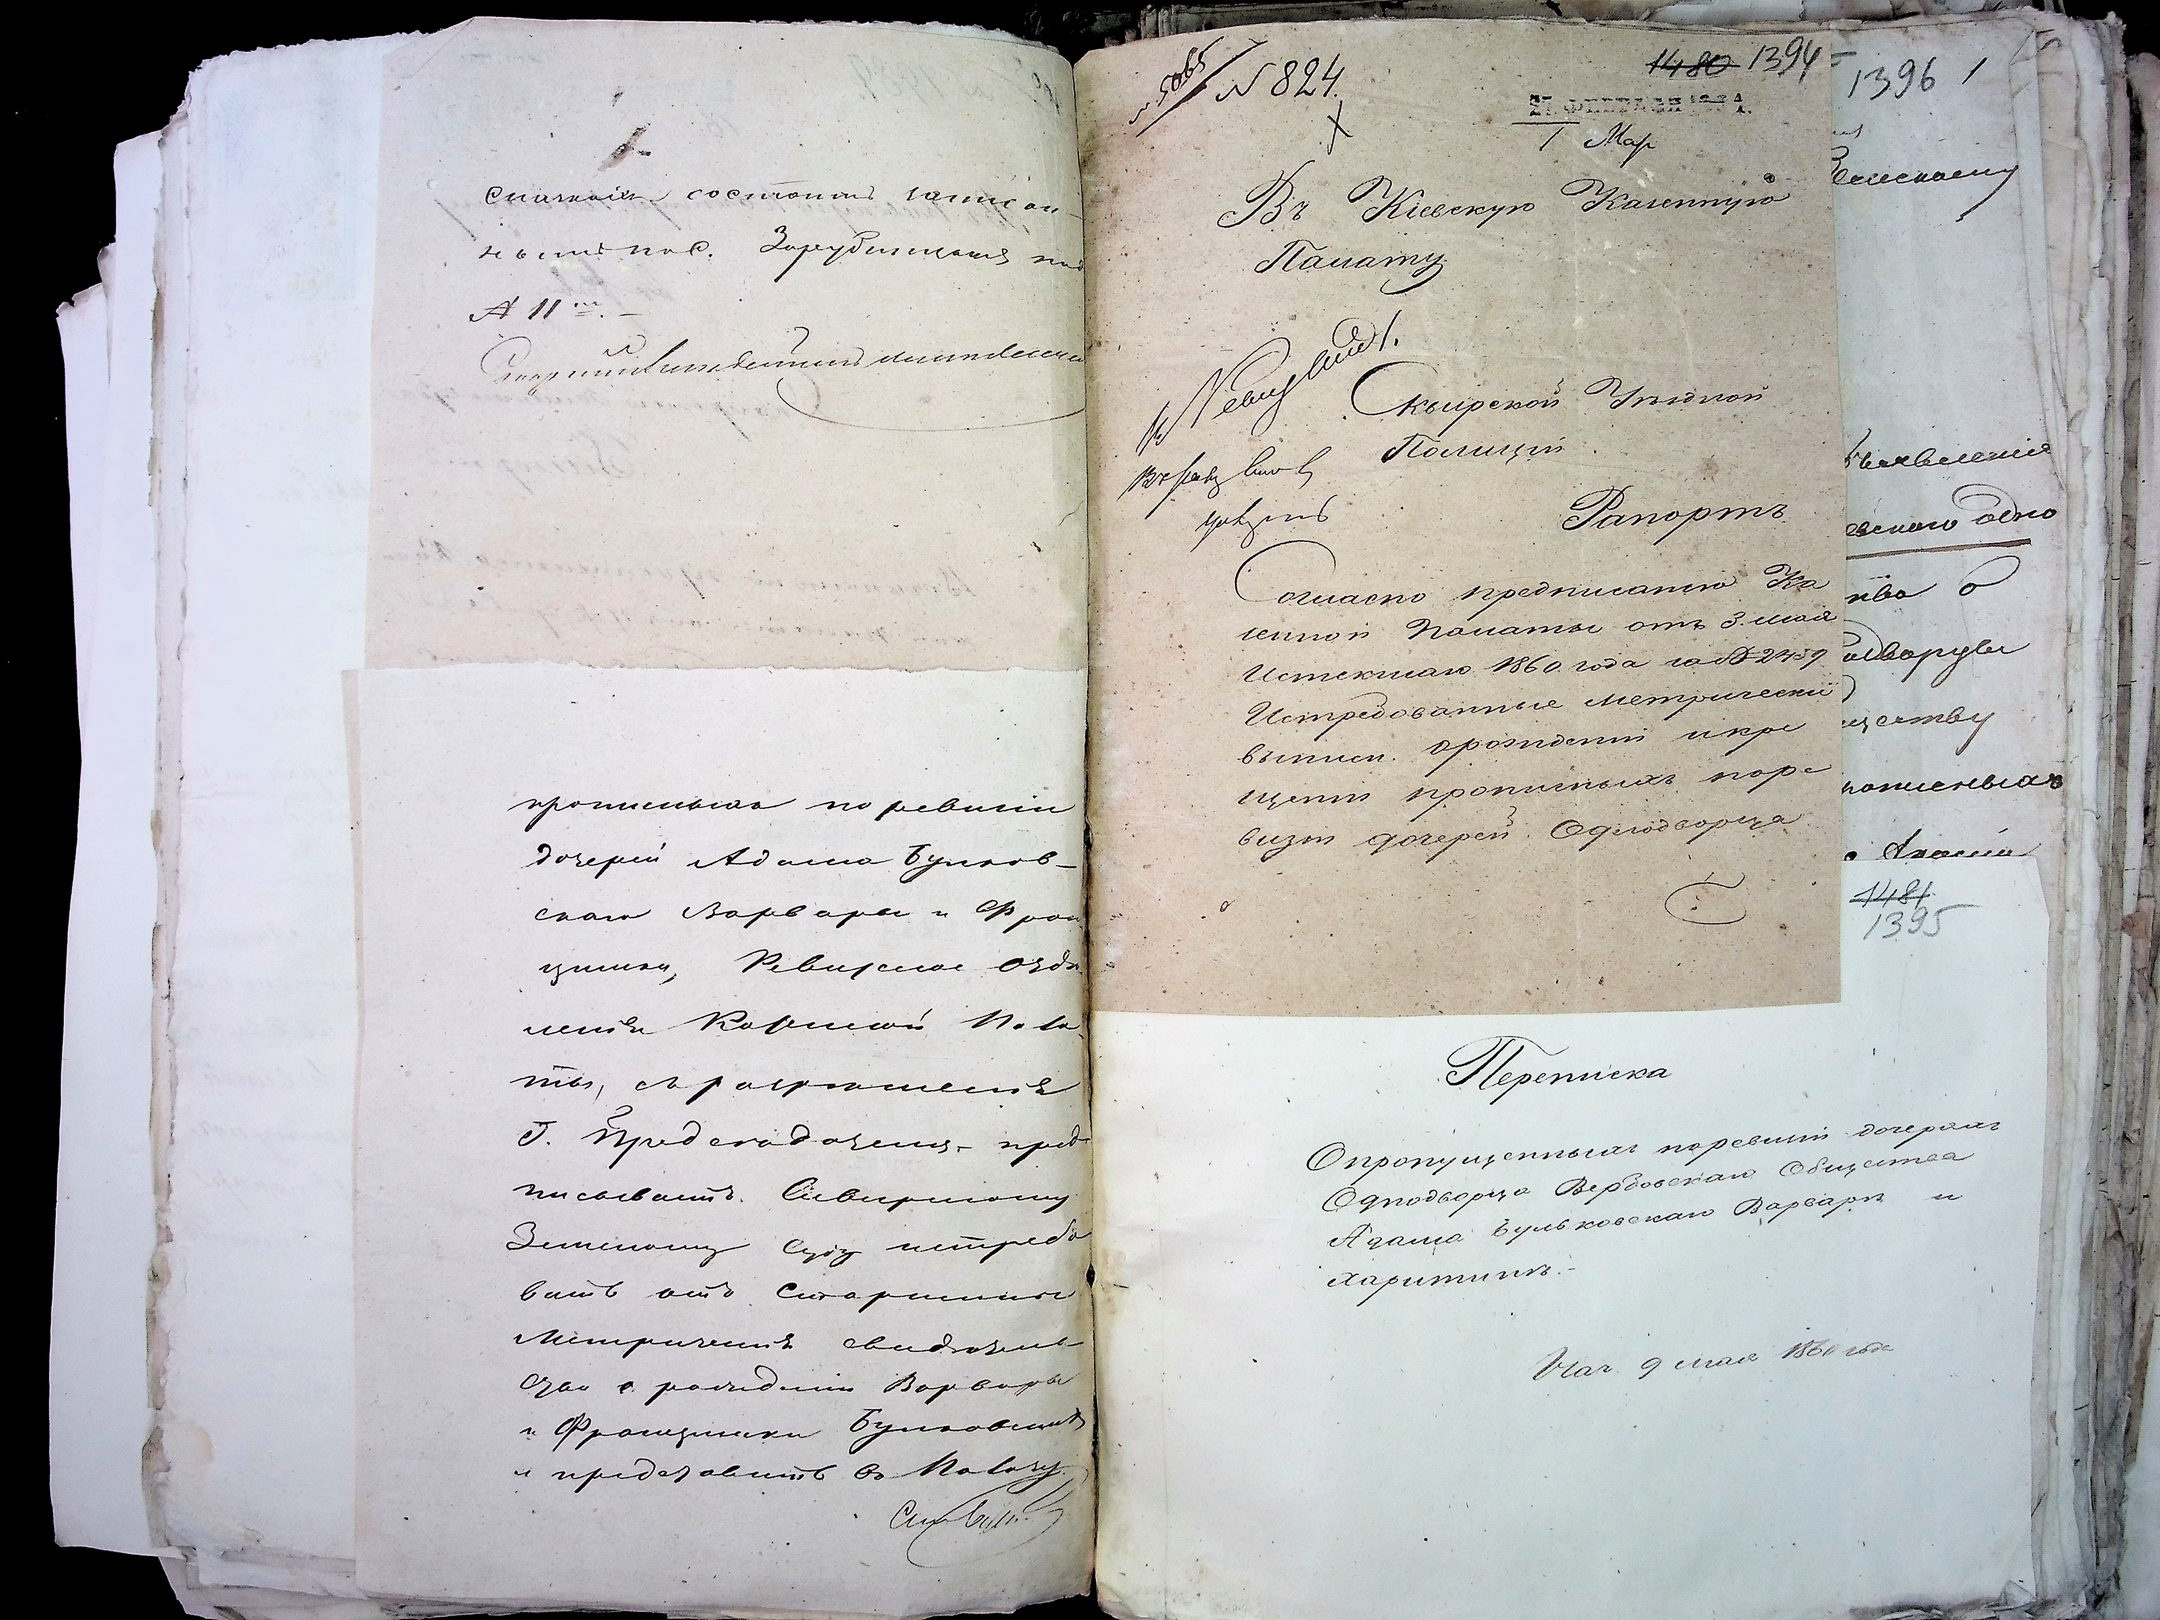 состоитъ записан-
нымъ по с. Зарубинцамъ под
№ 11
прописныхъ по ревизіи
дочерей Адама Булков-
скаго Варвары и Фран
цишки, Ревизское Отдѣ
леніе Казенной Пала-
ты, съ разрѣшенія
Г. Предсѣдателя, пред
писываетъ Сквирскому
Земскому Суду истребо
вать отъ Старшины
Метрическія свидѣтель-
ства о рожденіи Варвары
и Францишки Булковскихъ
и представить въ Палату.
№ 5065
№ 824.
1480 1394
27 ФЕВРАЛЯ
1 Мар
Въ Кіевскую Казенную
Палату
Сквирской Уѣздной
Полиціи
Рапортъ
Согласно предписанію Ка
зенной Палаты отъ 3 мая
Истекшаго 1860 года за № 2459
Истребованные метрически
выписи о рожденіи и кре
щеніи прописныхъ по ре
визіи дочерей Однодворца
1396
Земскому
овскаго одно
ства о
ществу
1481
1395
Переписка
О пропущенныхъ по ревизіи дочеряхъ
Однодворца Вербовскаго Общества
Адама Бульковскаго Варварѣ и
Харитинѣ.-
Нач. 9 мая 1860 года